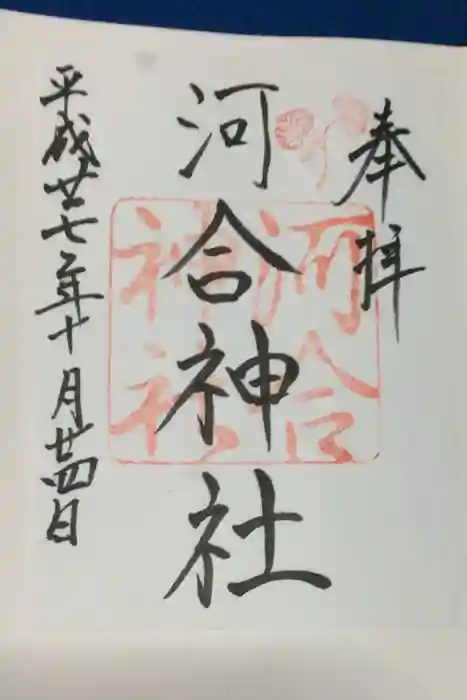 奉拝
河合神社
河合神社
平成廿七年十月廿四日